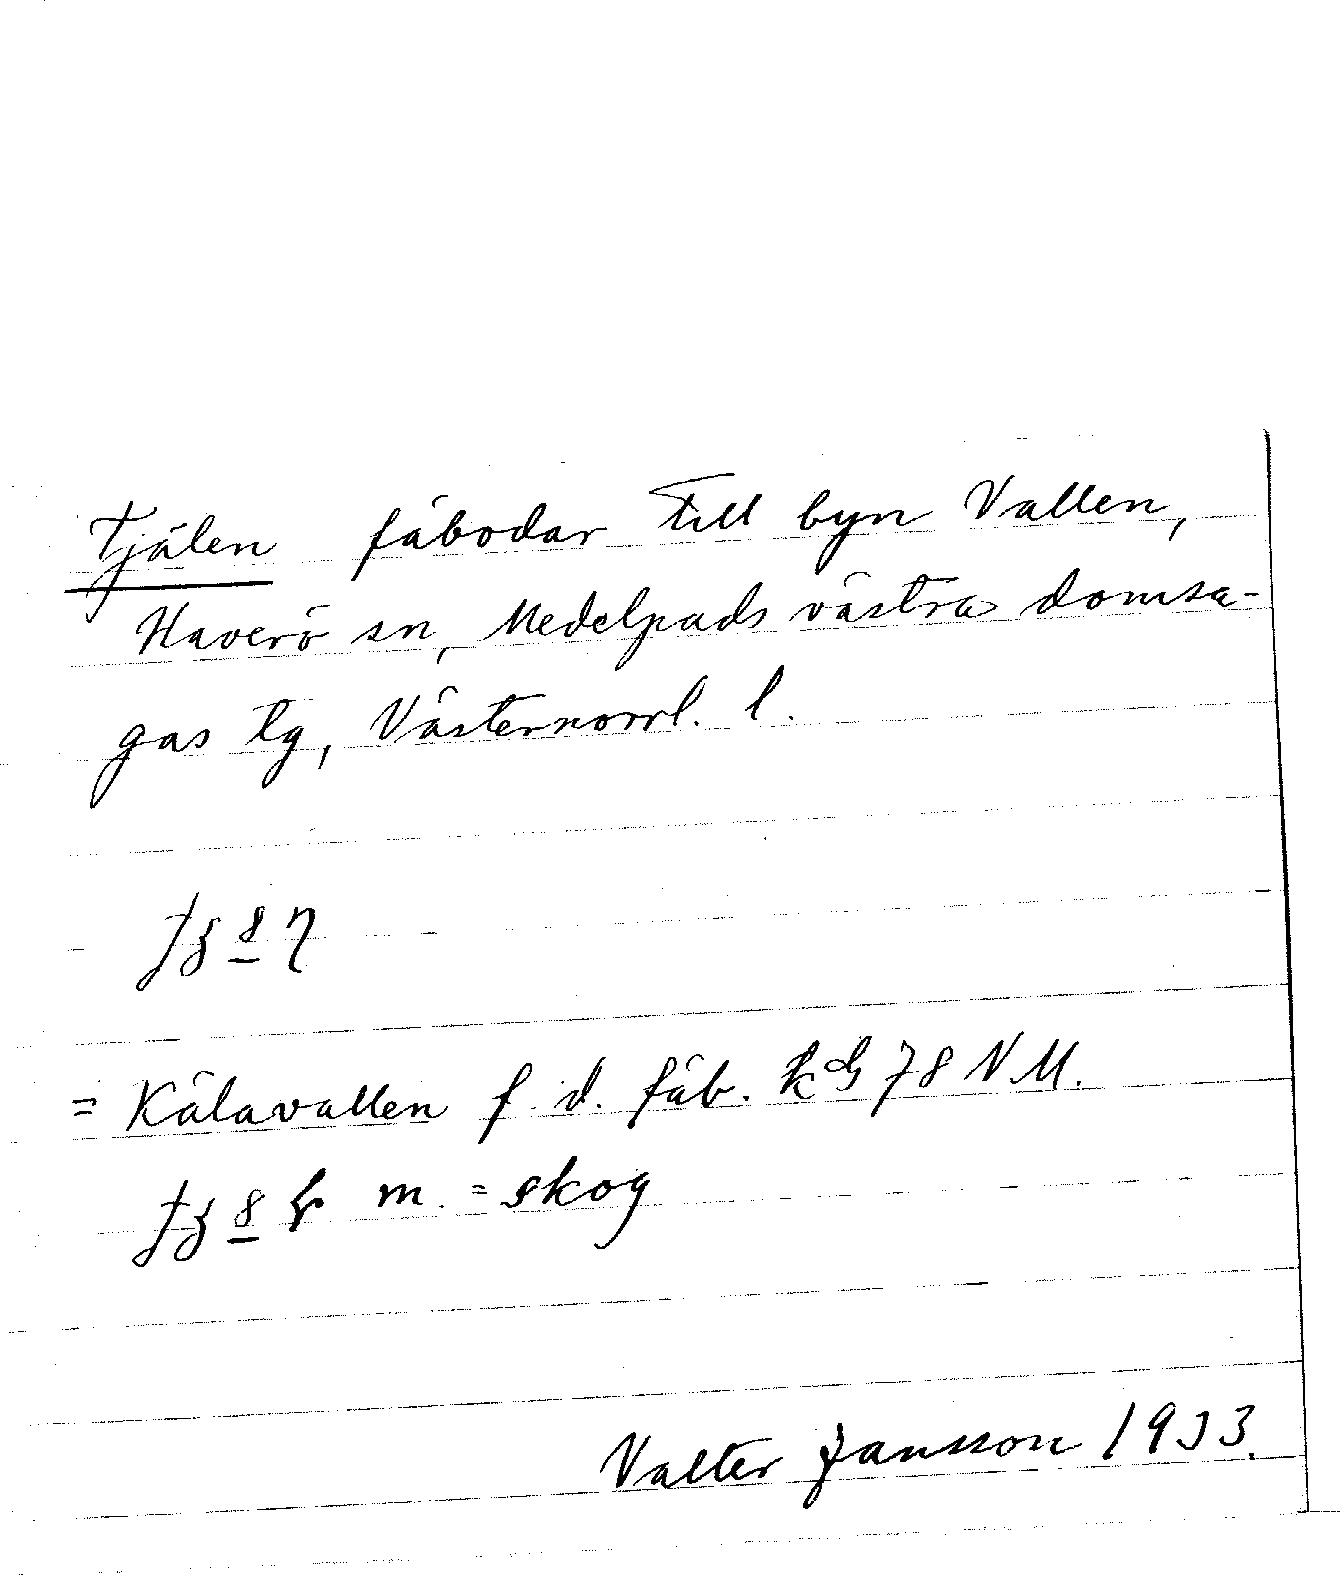 Tjälen fäbodar till byn Vallen,
Haverö sn, Medelpads västra domsa-
gas tg, Västernorrl. l.
= Kälavallen f. d. fäb. 78 NM.
m. = skog
Valter Jansson 1933.